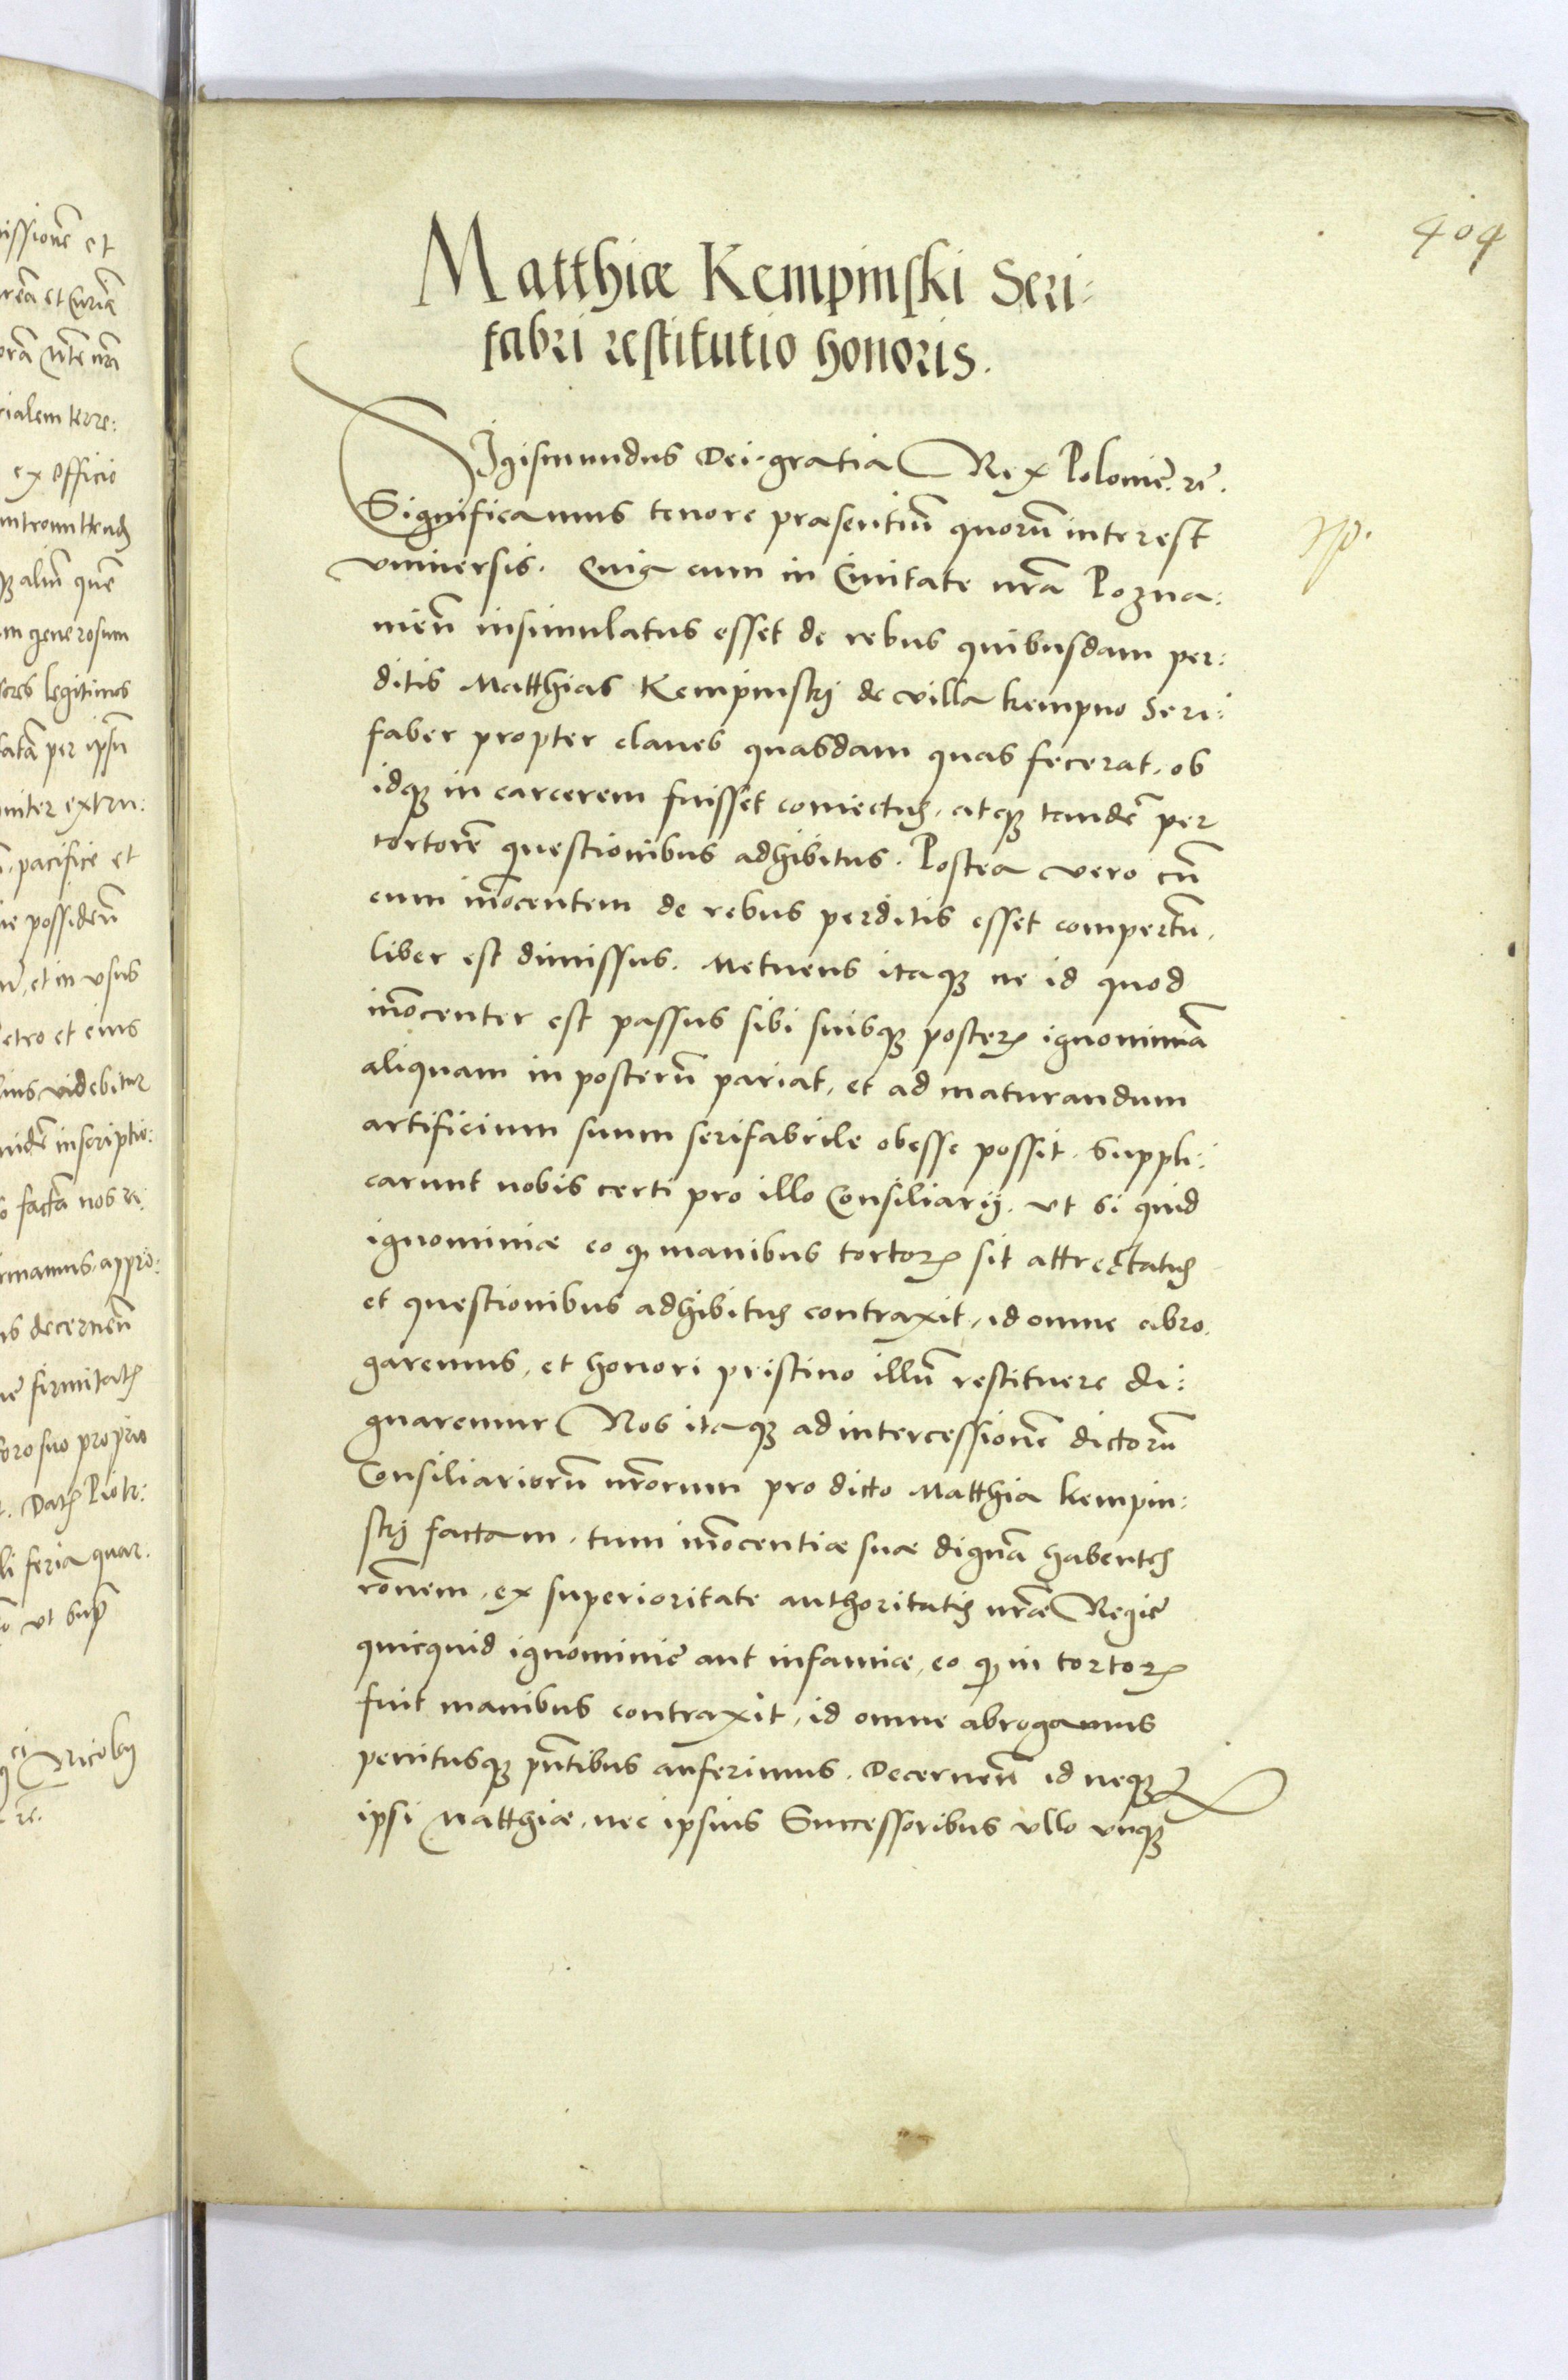 404
Matthiæ Kempinski Seri:
fabri restitutio honoris.
Sigismundus Dei gratia Rex Polonie. rc̃.
Significamus tenore præsentiũ quorũ interest
vniuersis. Quia cum in Ciuitate nr̃a Pozna:
nieñ insimulatus esset de rebus quibusdam per:
ditis Matthias Kempinskj de villa kempno Seri:
faber propter claues quasdam quas fecerat, ob
idq3 in carcerem fuisset coniectus, atq3 tandẽ per
tortorẽ questionibus adhibitus. Postea vero cũ
eum iñocentem de rebus perditis esset compertũ,
liber est dimissus. Metuens itaq3 ne id quod
iñocenter est passus sibi suisq3 posteris ignominiã
aliquam in posterũ pariat, et ad maturandum
artificium suum serifabrile obesse possit. Suppli:
carunt nobis certi pro illo Consiliarij. vt si quid
ignominiæ eo q̃ manibus tortoris sit attrectatus
et questionibus adhibitus contraxit, id omne abro,
garemus, et honori pristino illũ restituere di:
gnaremur Nos itaq3 ad intercessionẽ dictorũ
Consiliariorũ nr̃orum pro dicto Matthia kempin:
skj factam, tum iñocentiæ suæ dignã habentes
rõnem, ex superioritate authoritatis nr̃æ Regiẽ
quicquid ignominiẽ aut infamiæ, eo q̃ in tortoris
fuit manibus contraxit, id omne abrogamus
penitusq3 pñtibus auferimus. Decerneñ id neq3
ipsi Matthiæ, nec ipsius Successoribus vllo vnq3
issionẽ et
ialem terre:
ex officio
m generosum
legitimos
per ipsũ
niter extru:
pacifice et
possideñ
et in vsus
etro et eius
videbitur
inscriptio:
factã nos
appro:
decerneñ
suo proprio
Piotr:
feria quar.
vt supr̃
Nicolaj